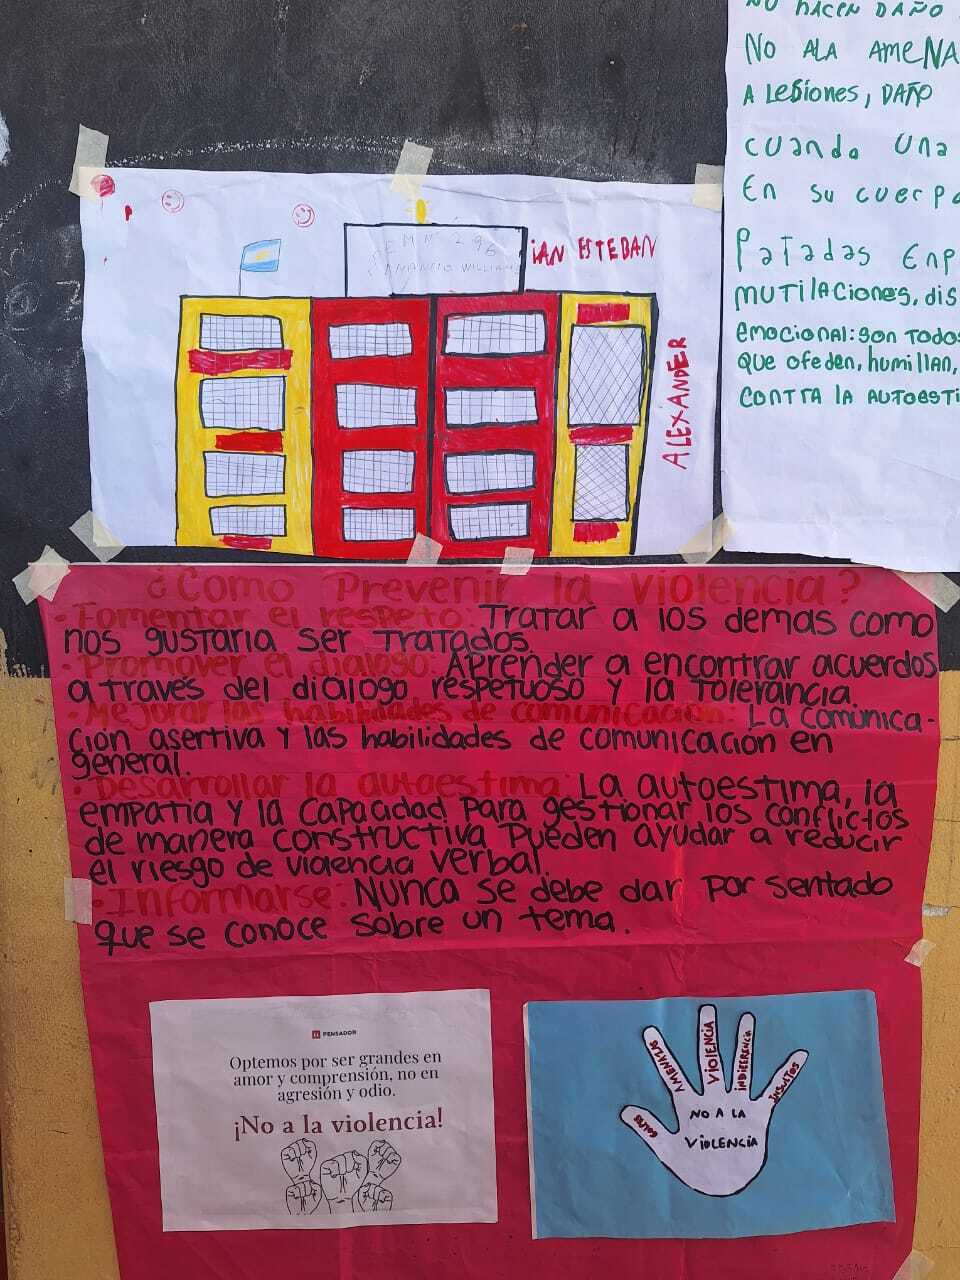 NO HACEN DAÑO
NO ALA AMENA
A Lesiones, DAÑO
cuando una
En su cuerpo
Patadas Enp
MUTILACIONES, DIS
EMOCIONAL: SON TODOS
QUE OFEDEN, HUMILLAN,
CONTRA LA AUTOESTI
E M N° 296
WILLIAMS
IAN ESTEBAN
ALEXANDER
¿Como Prevenir la violencia?
• Fomentar el respeto: Tratar a los demas como
nos gustaria ser tratados.
• Promover el dialogo: Aprender a encontrar acuerdos
a través del dialogo respetuoso y la tolerancia.
• Mejorar las habilidades de comunicación: La comunica-
ción asertiva y las habilidades de comunicación en
general.
• Desarrollar la autoestima: La autoestima, la
empatia y la capacidad para gestionar los conflictos
de manera constructiva pueden ayudar a reducir
el riesgo de violencia verbal.
• Informarse: Nunca se debe dar por sentado
que se conoce sobre un tema.
PENSADOR
Optemos por ser grandes en
amor y comprensión, no en
agresión y odio.
¡No a la violencia!
GOLPES
AMENAZAS
VIOLENCIA
INDIFERENCIA
INSULTOS
NO A LA
VIOLENCIA